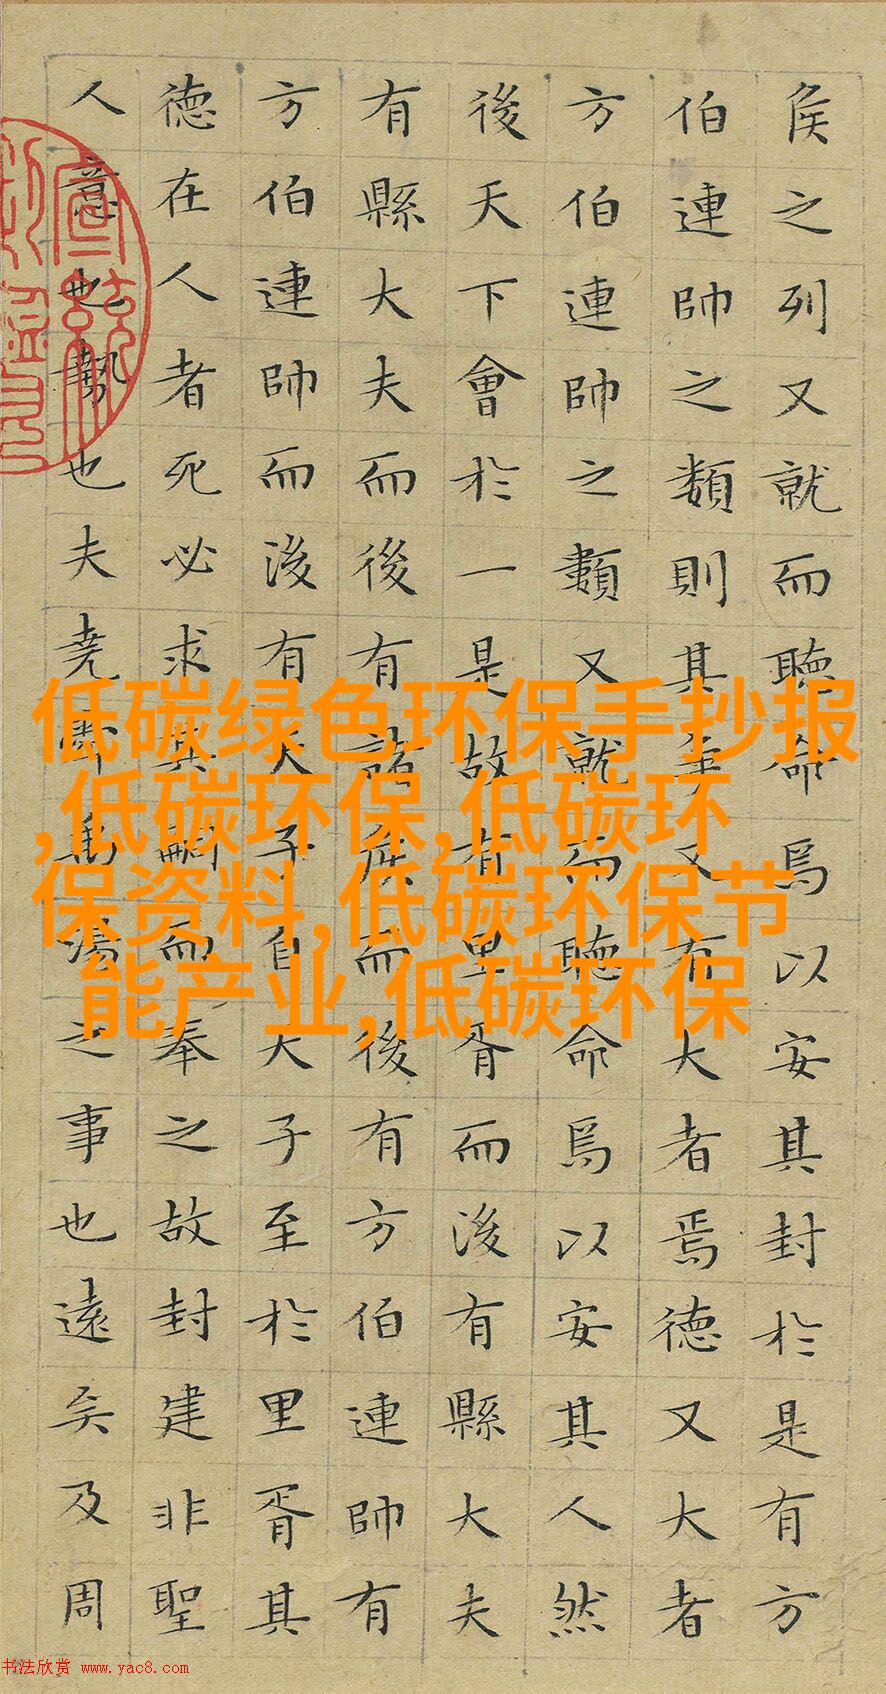 侯之列又就而聽命焉以安其封於是有方
伯連帥之類則其爭又有大者焉德又大者
方伯連帥之類又就而聽命焉以安其人然
後天下會於一是故有里胥而後有縣大夫
有縣大夫而後有諸侯而後有方伯連帥有
方伯連帥而後有天子自天子至於里胥其
德在人者死必求其嗣而奉之故封建非聖
人意也勢也夫堯舜禹湯之事也遠矣及周
低碳绿色环保手抄报
,低碳环保,低碳环
保资料,低碳环保节
能产业,低碳环保
书法欣赏 www.yac8.com